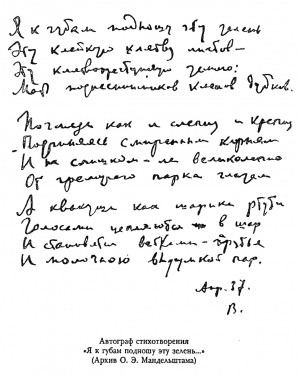 Я к губам подношу эту зелень
Эту клейкую клятву листов –
Эту клятвопреступную землю:
Мать подснежников кленов дубков.
Погляди как я слепну и крепну
Подчиняясь смиренным корням
И не слишком-ли великолепно
От гремучего парка глазам
А квакуши как шарики ртути
Голосами цепляются в шар
И становятся ветками – прутья
И молочною выдумкой пар.
Апр. 37.
В.
Автограф стихотворения
«Я к губам подношу эту зелень...»
(Архив О. Э. Мандельштама)